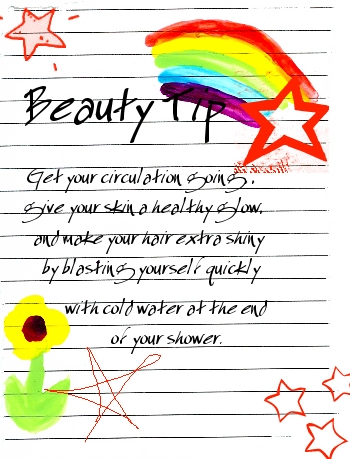 Beauty Tip
Get your circulation going,
give your skin a healthy glow,
and make your hair extra shiny
by blasting yourself quickly
with cold water at the end
of your shower.